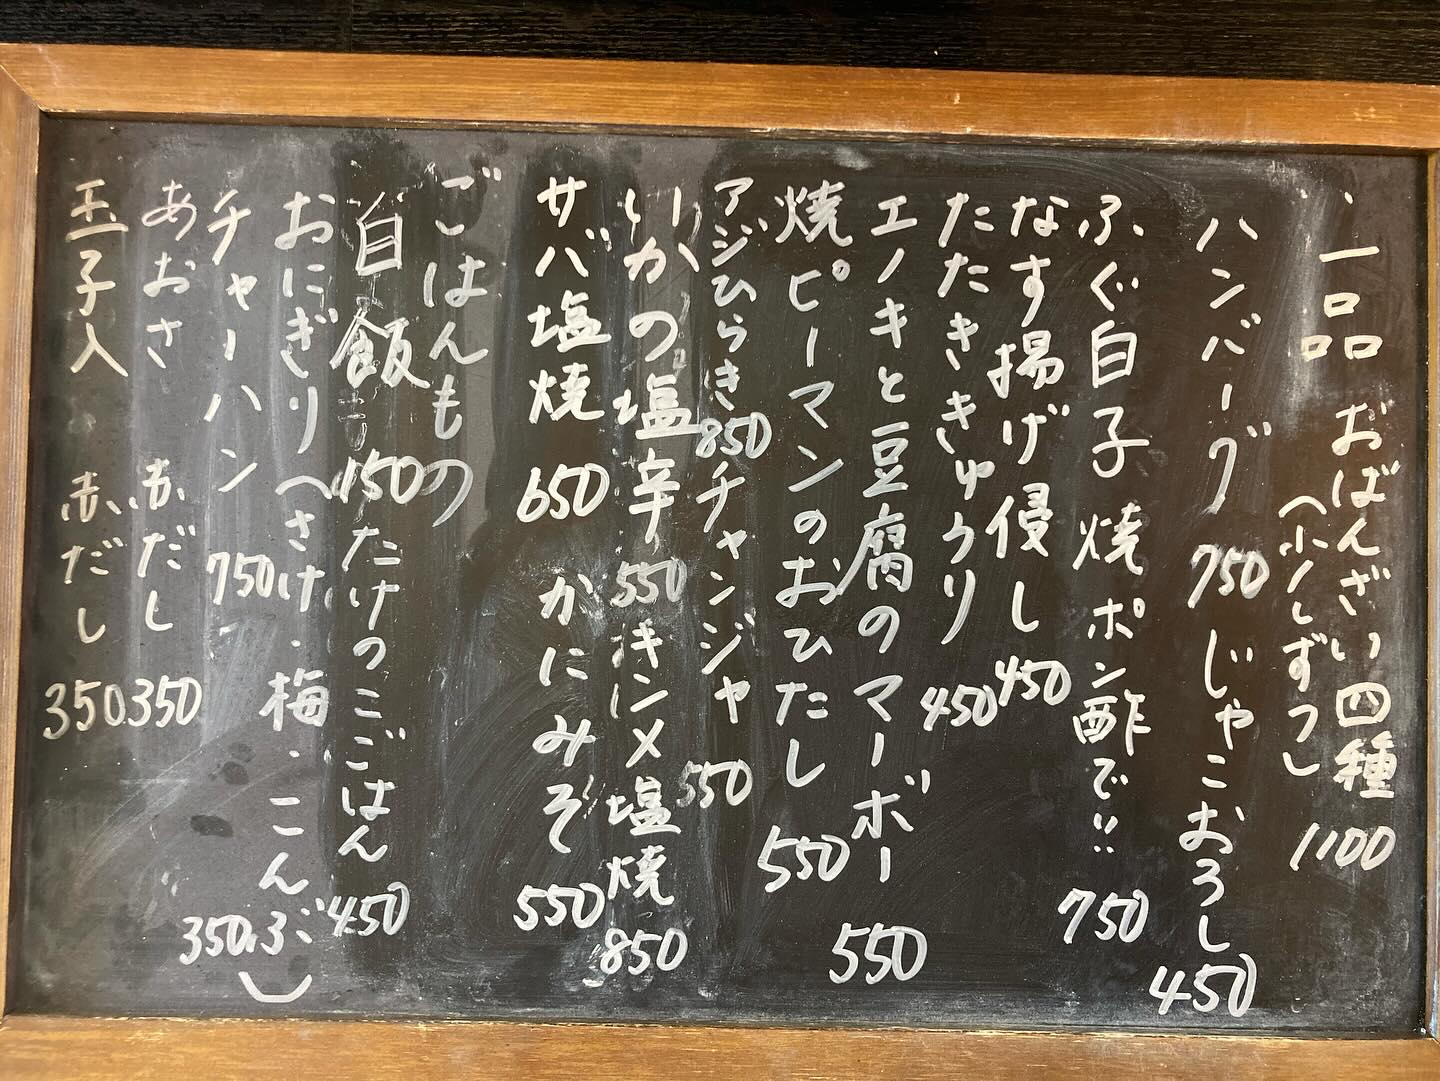 ・一品 おばんざい四種 1100
(ハーしずつ)
ハンバーグ 750 じゃこおろし 450
ふぐ白子 焼ポン酢で!! 750
なす揚げ侵し 450
たたききゅうり 450
エノキと豆腐のマーボー 550
焼ピーマンのおひたし 550
アジひらき 850 チャンジャ 550
いかの塩辛 550 キンメ塩焼 850
サバ塩焼 650 かにみそ 550
ごはんもの
白飯 150 たけのこごはん 450
おにぎり(さけ・梅・こんぶ) 350
チャーハン 750
あおさ 赤だし 350
玉子入 赤だし 350